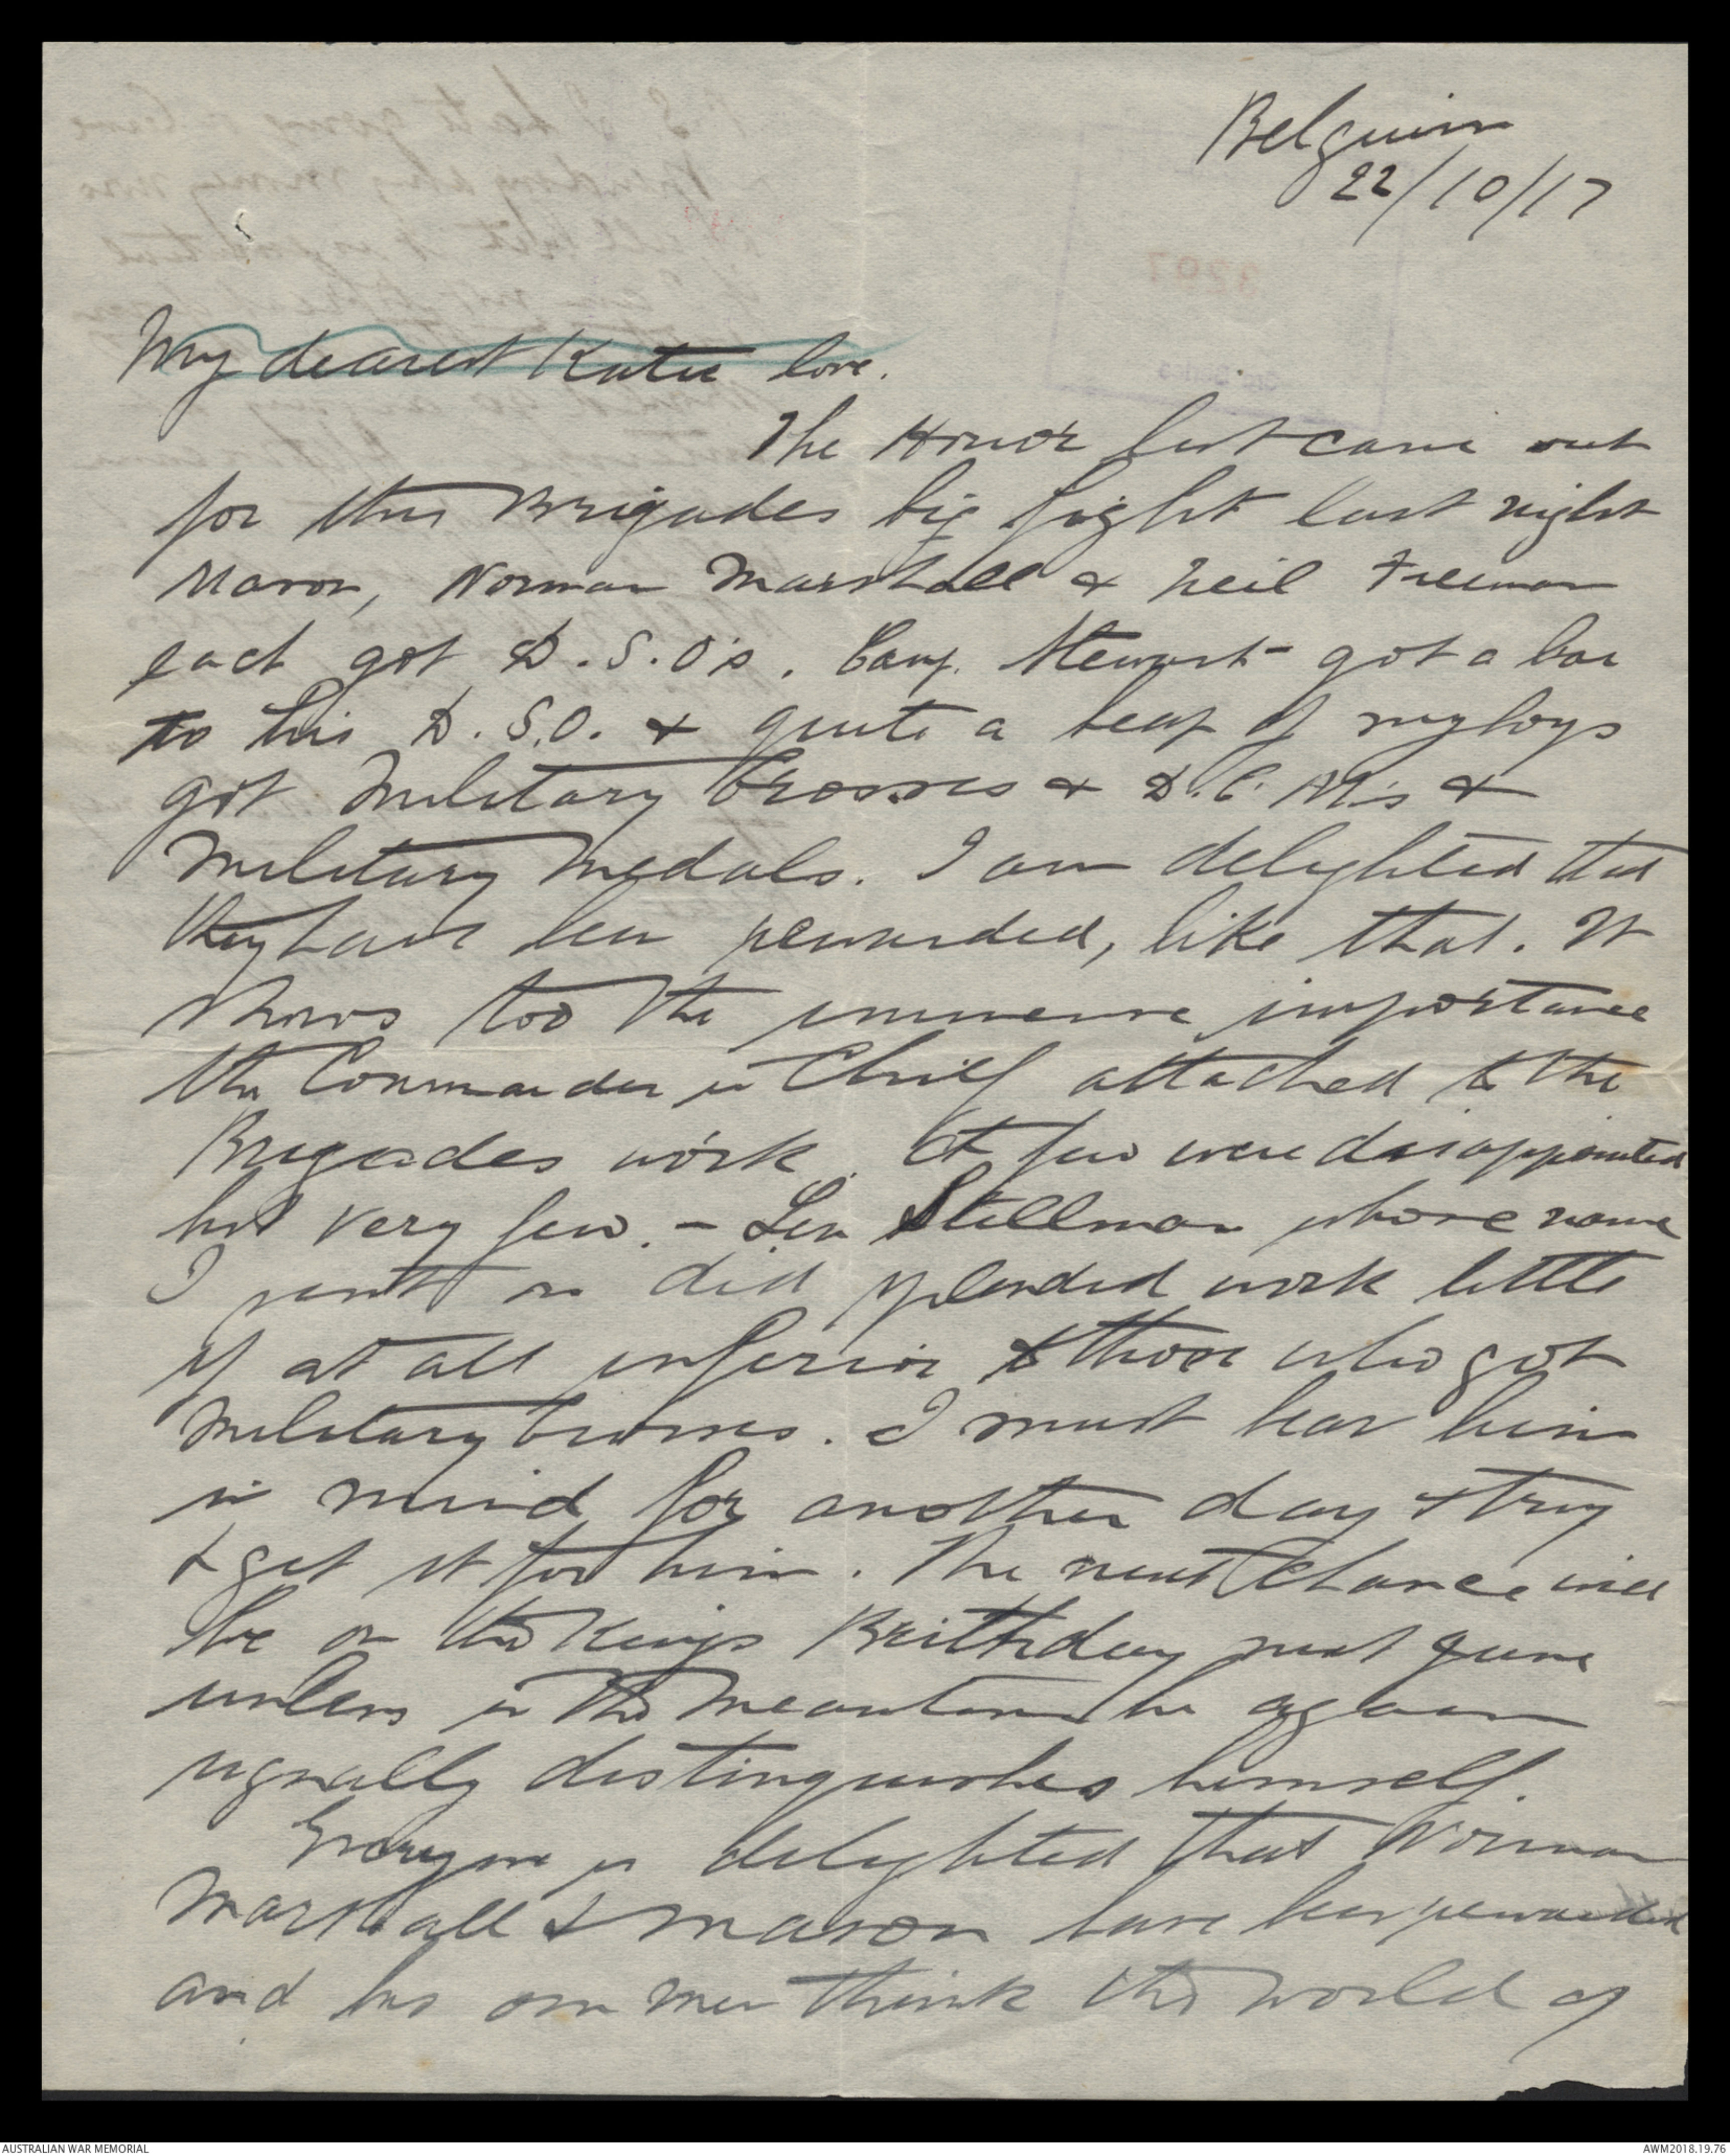 Belguim
22/10/17
My dearest Katie love.
The Honor list came out
for this Brigades big fight last night
Mason, Norman Marshall & Neil Freeman
each got D.S.O's. Camp. Stewart got a bar
to his D.S.O. & quite a heap of my boys
got Military Crosses & D.C.M's &
Military Medals. I am delighted that
they have been rewarded, like that. It
shows too the immense importance
the Commander in Chief attached to the
Brigades work. A few were disappointed
but very few. - Len Stillman whose name
I sent on did splendid work little
if at all inferior to those who got
Military Crosses. I must bear him
in mind for another day & try
& get it for him. The next chance will
be on the Kings Birthday next June
unless in the meantime he again
signally distinguishes himself.
Everyone is delighted that Norman
Marshall & Mason have been rewarded
and his own men think the world of
3297
AUSTRALIAN WAR MEMORIAL
AWM2018.19.76